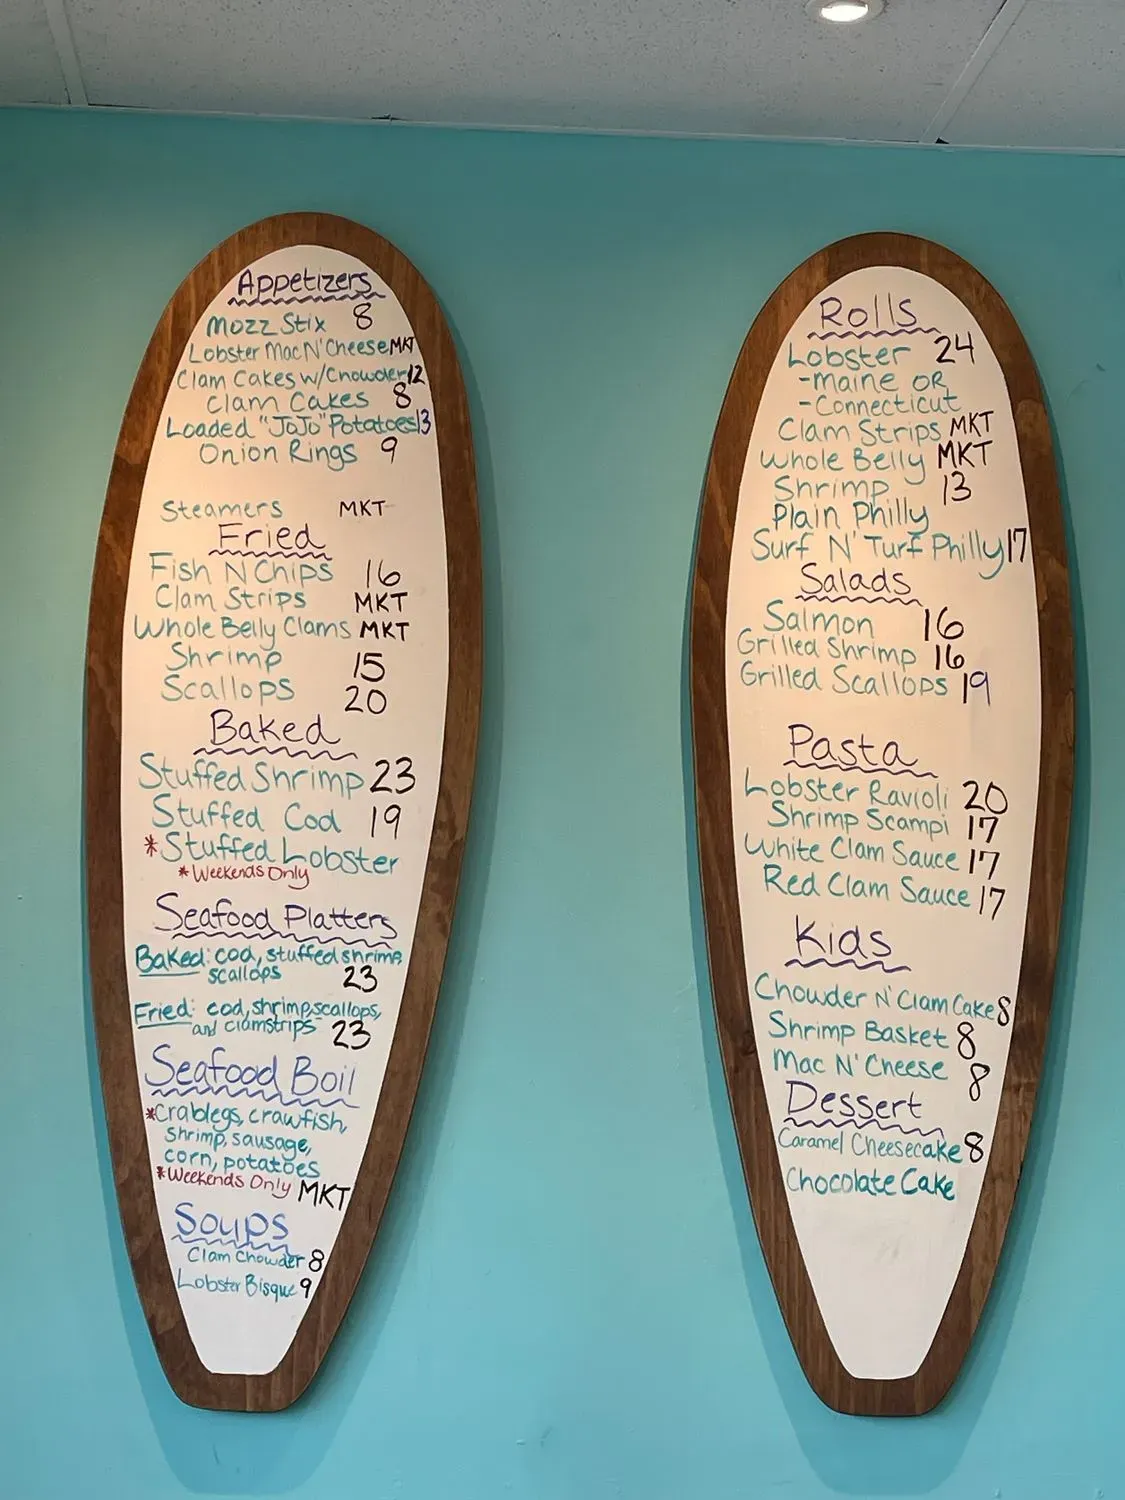 Appetizers
Mozz Stix 8
Lobster Mac N' Cheese MKT
Clam Cakes w/Chowder 12
Clam Cakes 8
Loaded "JoJo" Potatoes 13
Onion Rings 9
Steamers MKT
Fried
Fish N Chips 16
Clam Strips MKT
Whole Belly Clams MKT
Shrimp 15
Scallops 20
Baked
Stuffed Shrimp 23
Stuffed Cod 19
*Stuffed Lobster
*Weekends Only
Seafood Platters
Baked: cod, stuffed shrimp,
scallops 23
Fried: cod, shrimp, scallops,
and clamstrips 23
Seafood Boil
*Crablegs, crawfish,
shrimp, sausage,
corn, potatoes
*Weekends Only MKT
Soups
Clam Chowder 8
Lobster Bisque 9
Rolls
Lobster 24
-maine OR
-Connecticut
Clam Strips MKT
Whole Belly MKT
Shrimp 13
Plain Philly
Surf N' Turf Philly 17
Salads
Salmon 16
Grilled Shrimp 16
Grilled Scallops 19
Pasta
Lobster Ravioli 20
Shrimp Scampi 17
White Clam Sauce 17
Red Clam Sauce 17
Kids
Chowder N' Clam Cake 8
Shrimp Basket 8
Mac N' Cheese 8
Dessert
Caramel Cheesecake 8
Chocolate Cake